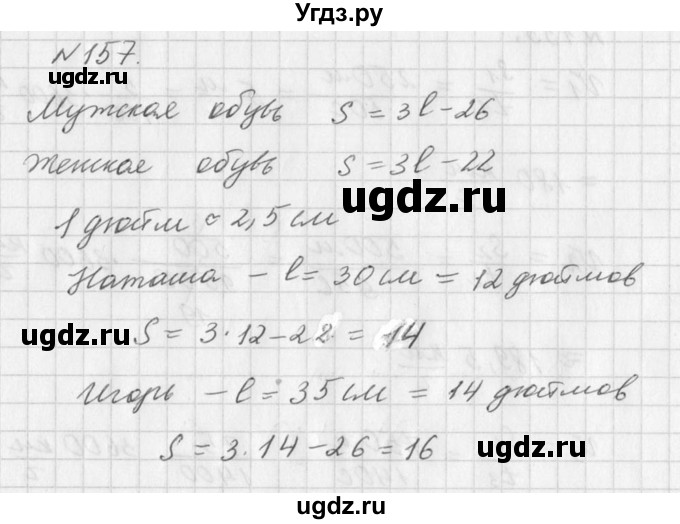 Угдз.ру
№157.
Мужская обувь S = 3l - 26
Женская обувь S = 3l - 22
1 дюйм ≈ 2,5 см
Наташа - l = 30 см = 12 дюймов
S = 3·12 - 22 = 14
Игорь - l = 35 см = 14 дюймов
S = 3·14 - 26 = 16
ugdz.ru
ugdz.ru
ugdz.ru
ugdz.ru
ugdz.ru
ugdz.ru
ugdz.ru
ugdz.ru